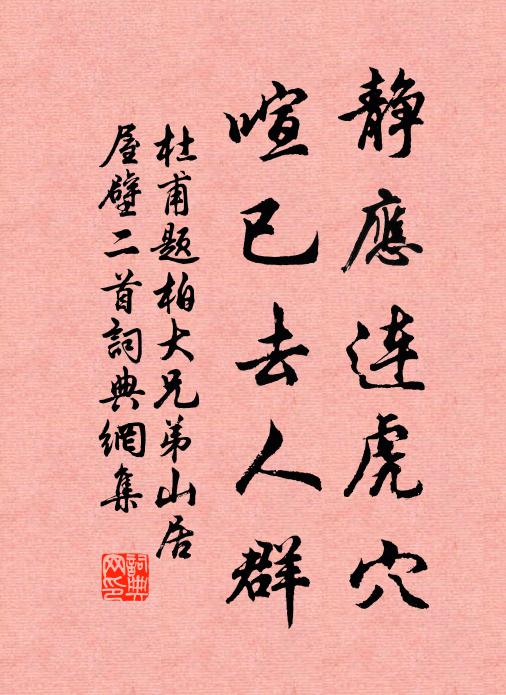 静應连虎穴
喧已去人群
杜甫题柏大兄弟山居
屋壁二首詞典網集
詞典网印